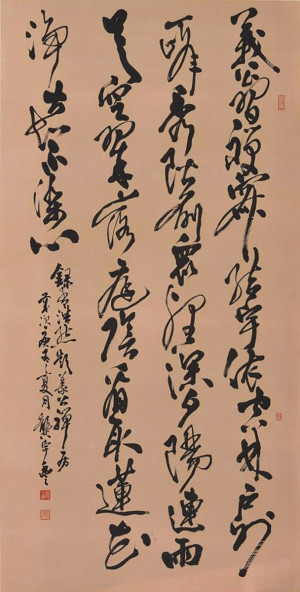 義公習禅寂結宇依空林户外
一峰秀階前衆壑深夕陽連雨
足空翠落庭陰看取蓮花
净方知不染心
録孟浩然题義公禅房
歲次庚子之夏月